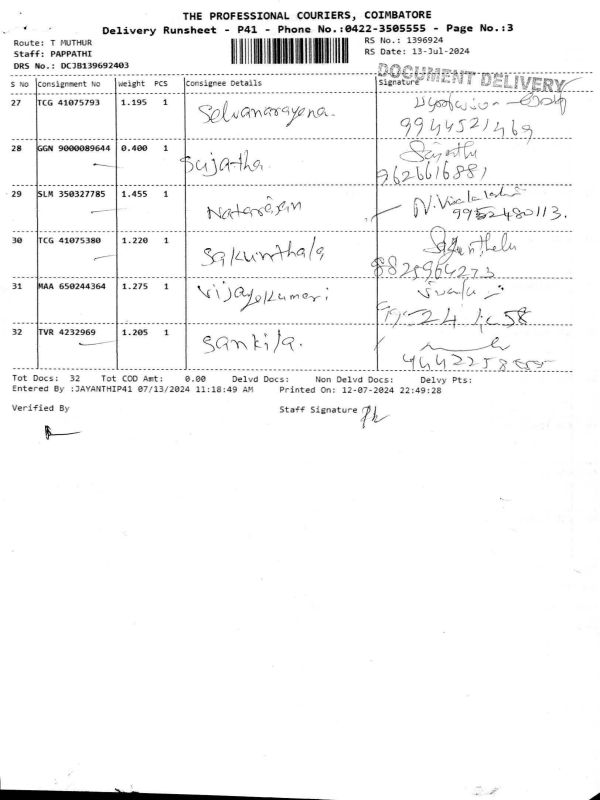 THE PROFESSIONAL COURIERS, COIMBATORE
Delivery Runsheet - P41 - Phone No.:0422-3505555 - Page No.:3
Route: T MUTHUR
RS No.: 1396924
Staff: PAPPATHI
RS Date: 13-Jul-2024
DRS No.: DCJB139692403
DOCUMENT DELIVERY
S No Consignment No Weight PCS Consignee Details Signature
27 TCG 41075793 1.195 1 Selvanarayena.
9944521469
28 GGN 9000089644 0.400 1 Sujatha. Sujatha
9626616881
29 SLM 350327785 1.455 1 Natarasan N.
9952480113.
30 TCG 41075380 1.220 1 Sakunthala
8825964273
31 MAA 650244364 1.275 1 Vijayakumari
32 TVR 4232969 1.205 1 Sankila.
Tot Docs: 32 Tot COD Amt: 0.00 Delvd Docs: Non Delvd Docs: Delvy Pts:
Entered By :JAYANTHIP41 07/13/2024 11:18:49 AM Printed On: 12-07-2024 22:49:28
Verified By Staff Signature